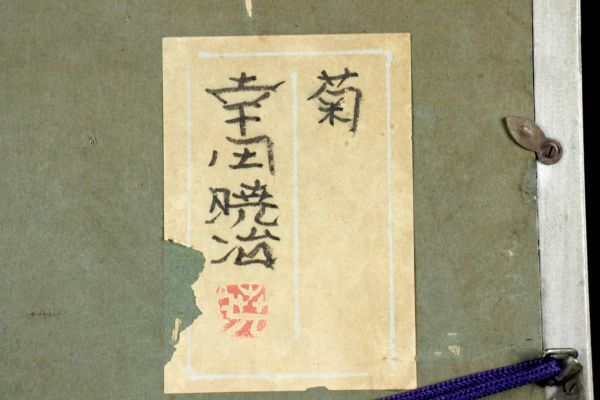 菊
幸田暁治